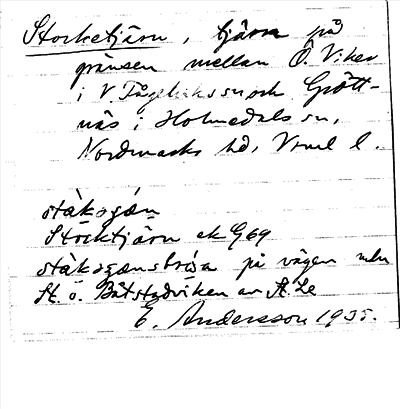 Stocketjärn, tjärn på
gränsen mellan Ö. Viker
i V. Fågelviks sn och Grött-
näs i Holmedals sn,
Nordmarks hd, Vrml l.
Stocktjärn ek G69
på vägen mln
St. o. Båtstadviken av A. Le
E. Andersson 1935.